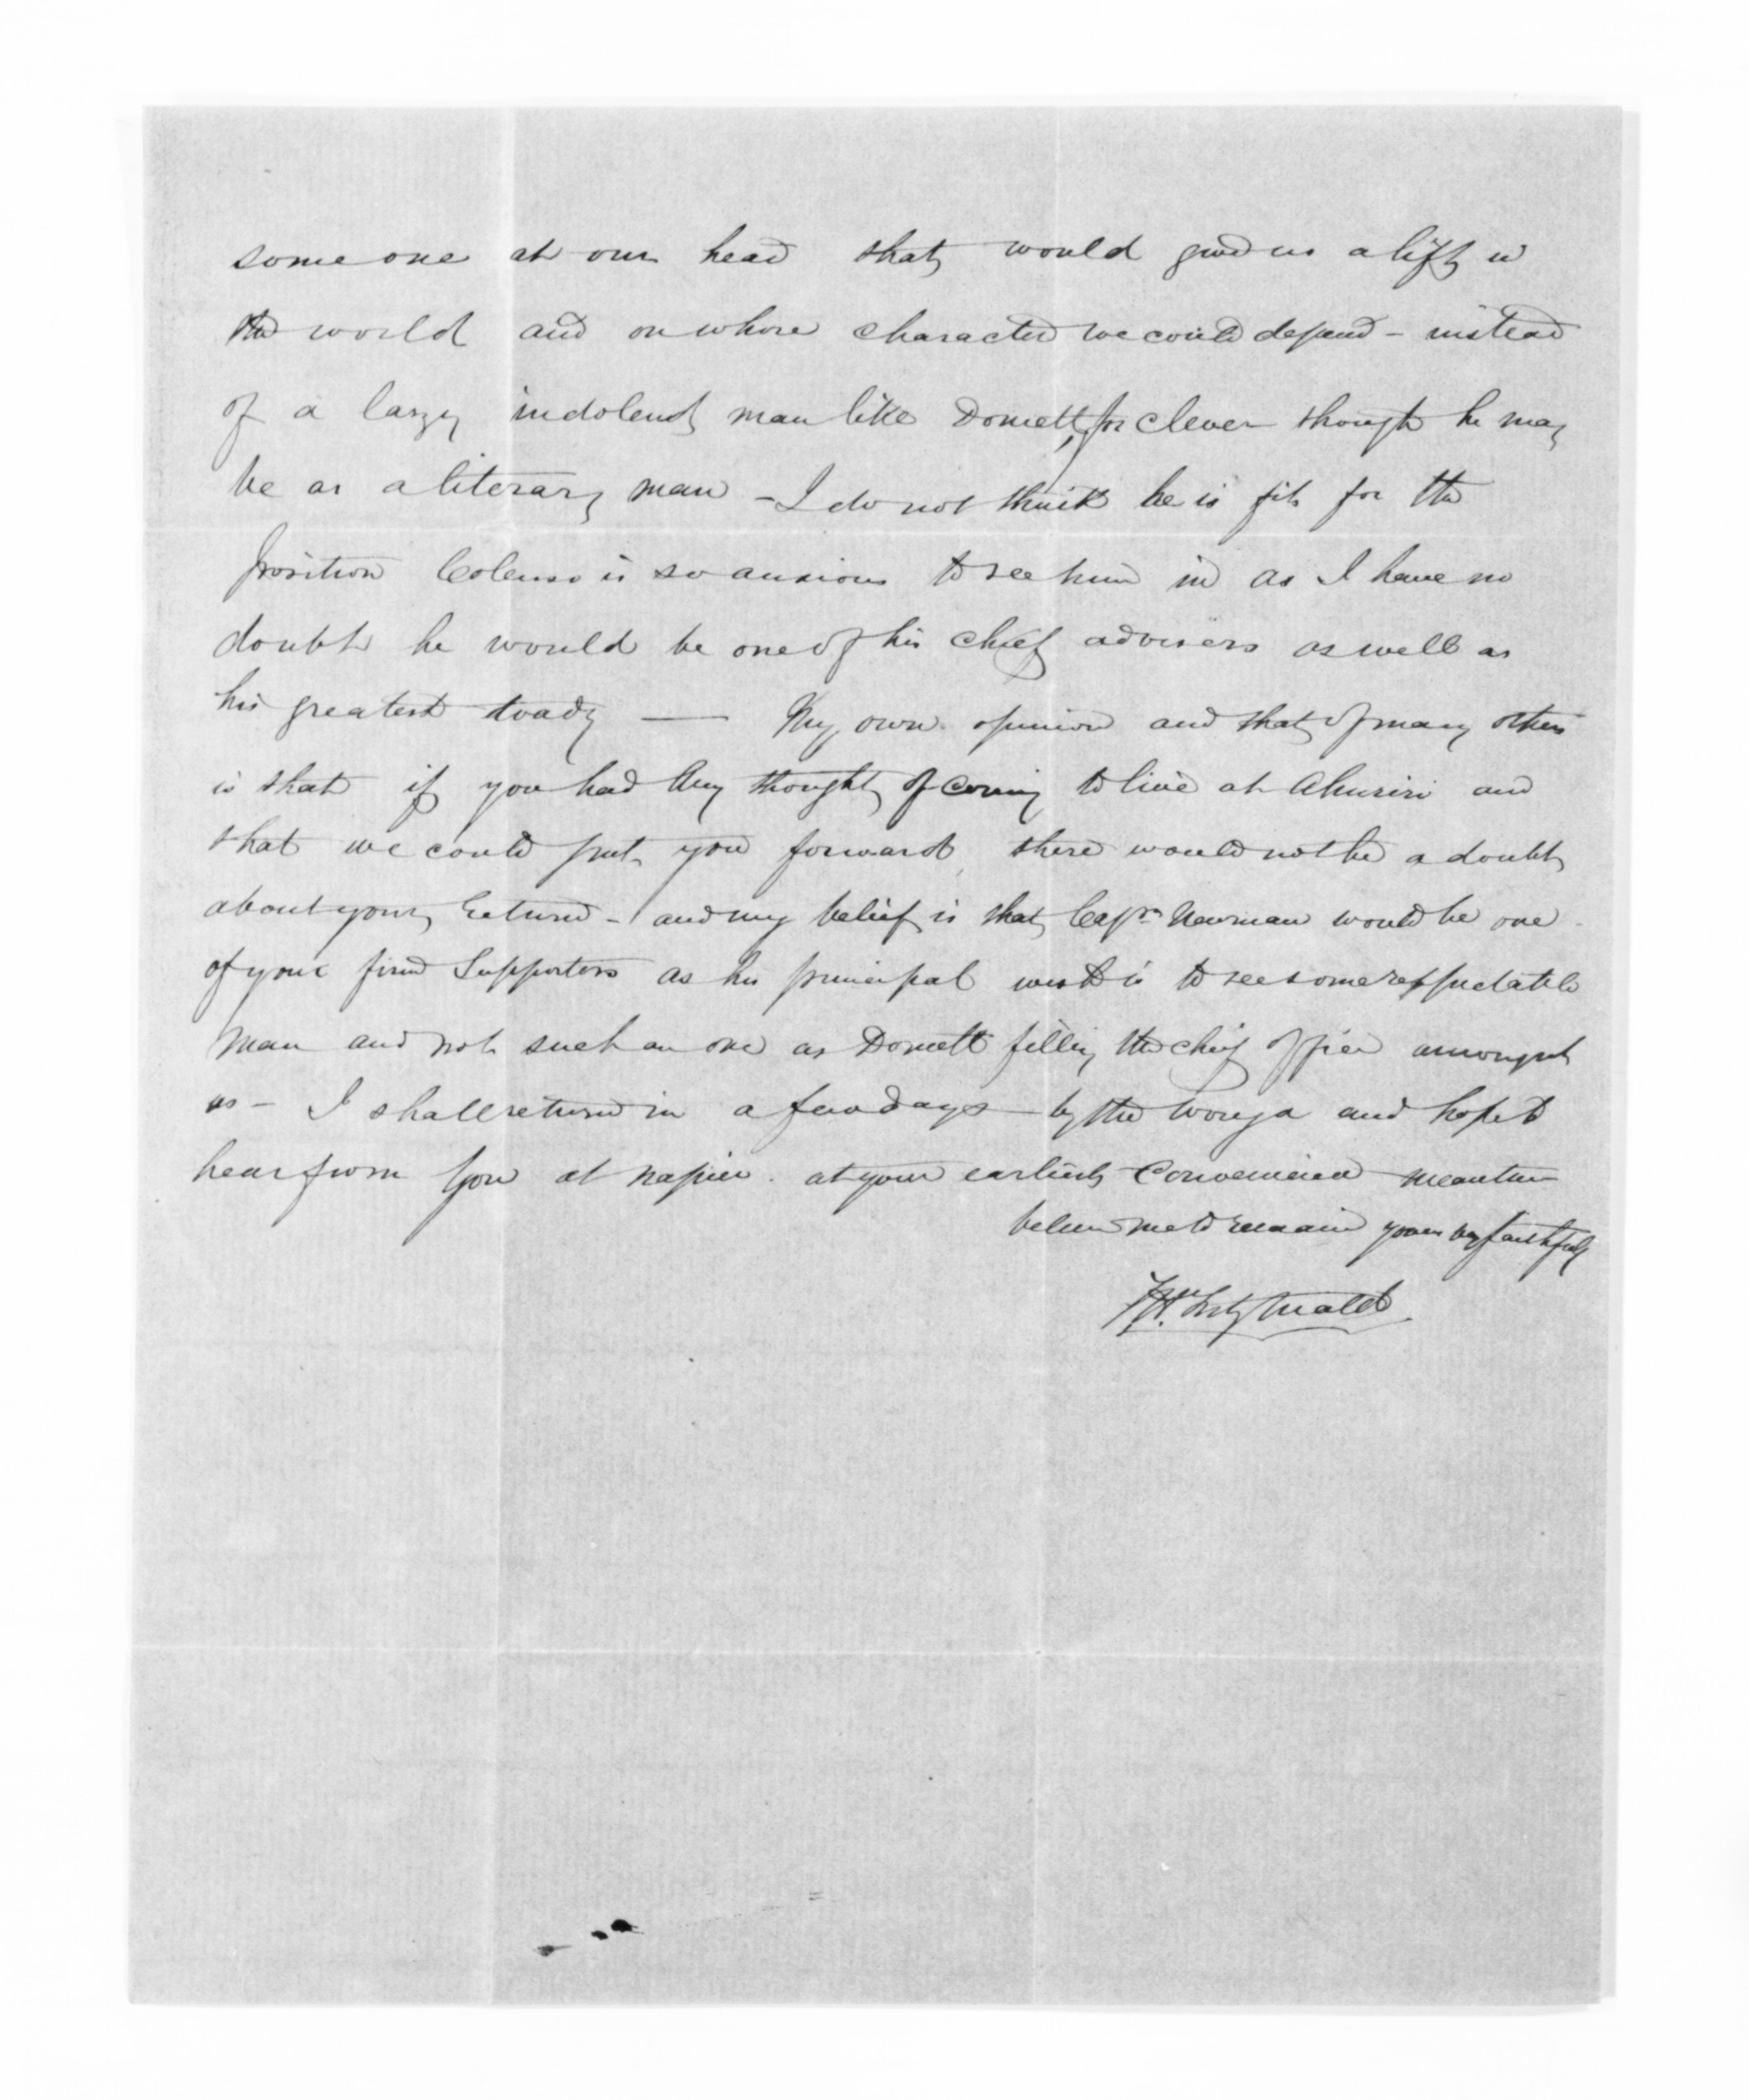 some one at our head that would give us a lift in
the world and on whose character we could depend - instead
of a lazy indolent man like Domett, for clever though he may
be as a literary man - I do not think he is fit for the
position Colenso is so anxious to see him in as I have no
doubt he would be one of his chief advisers as well as
his greatest toady — My own opinion and that of many others
is that if you had any thought of coming to live at Ahuriri and
that we could put you forward, there would not be a doubt
about your return - and my belief is that Capn Newman would be one
of your firm supporters as his principal wish is to see some respectable
man and not such an one as Domett filling the chief office amongst
us - I shall return in a few days - by the Wonga and hope to
hear from you at Napier. at your earliest convenience meantime
believe me to remain yours very faithfully